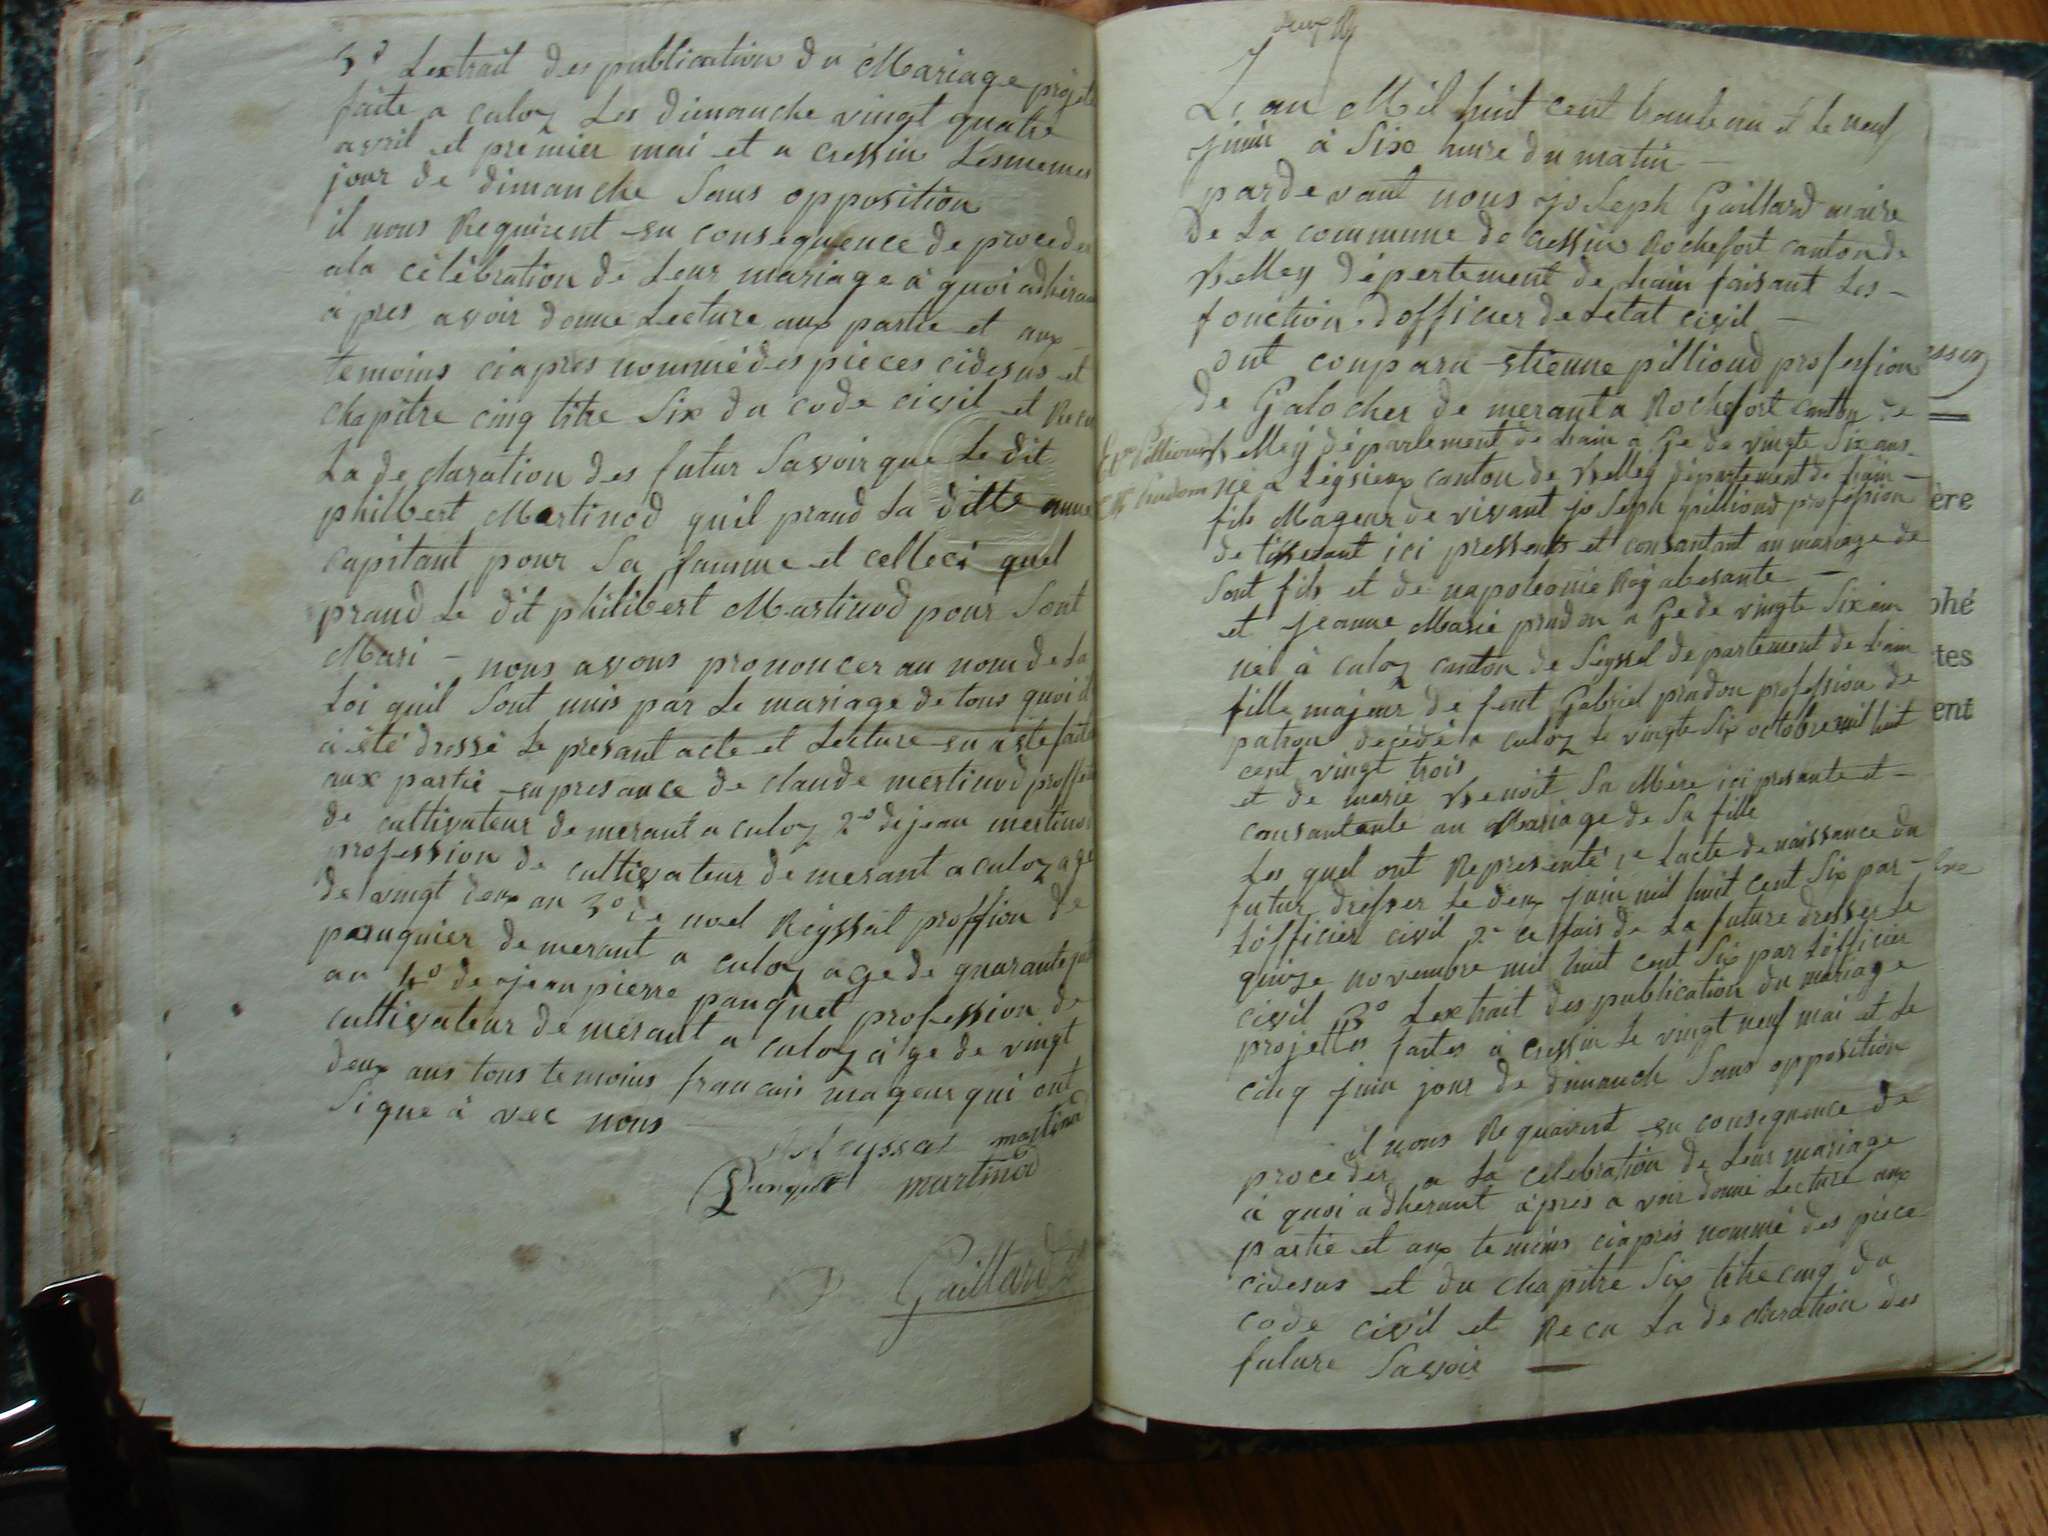 3º Lextrait des publication du Mariage projeté
faite a culoz Les dimanche vingt quatre
avril et premier mai et a cressin Lesmemes
jour de dimanche Sans opposition
il nous Requirent en consequence de proceder
ala célébration de Leur mariage à quoi adhérant
àpres avoir donne Lecture aux partie et aux
temoins ciapres nommé des pièces cidesus et
chapitre cinq titre Six du code civil et Recu
La declaration des futur Savoir que Le dit
philbert Martinod quil prand La ditte anne
capitant pour Sa famme et celleci quel
prand Le dit philibert Martinod pour Sont
Mari - nous avons prononcer au nom de La
Loi quil Sont unis par Le mariage de tous quoi il
à été dressé Le presant acte et Lecture en a été faite
aux partie en presance de claude mertinod proffesion
de cultivateur demerant a culoz 2º de jean mertinod
profession de cultivateur demerant a culoz age
de vingt deux an 3º de noel Reyssal proffion de
peruquier demerant a culoz age de quarante
an 4º de jean pierre panquet profession de
cultivateur demerant a culoz àge de vingt
deux ans tous temoins francais mageur qui ont
Signe à vec nous
Reyssat martinod
Panquet martinod
Gaillard
deux
L an Mil huit cent trante un et Le neuf
juin à Six heure du matin
pardevant nous joseph Gaillard maire
De La commune de cressin Rochefort canton de
Belley département de Lain faisant Les
fonction dofficier de Letat civil
ont comparu etienne pilliond profession
de Galocher demerant a Rochefort canton de
Belley département de Lain a Ge de vingte Six ans
né a Léysieux canton de Belley département de Lain
fils Mageur de vivant joseph pilliond profession
de tisserant ici pressents et consantant au mariage de
Sont fils et de napoleonie Roy abesante
et jeanne Marie prudon a Ge de vingte Six an
né à culoz canton de Seyssel departement de Lain
fille majeur de feut Gabriel prudon profession de
patron decédé a culoz Le vingte Six octobre mil huit
cent vingt trois
et de marie Benoit Sa Mère ici presante et
consantante au Mariage de Sa fille
Les quel ont Representé 1º Lacte de naissance du
futur dresser Le deux juin mil huit cent Six par
Lofficier civil 2º celui de La future dresser Le
quinze novembre mil huit cent Six par Lofficier
civil 3º Lextrait des publication du mariage
projettes faites à cressin Le vingt neuf mai et Le
cinq juin jour de dimanch Sans opposition
il nous Requirent en consequence de
proceder a La celebration de Leur mariage
à quoi adherant àpres a voir donné Lecture aux
partie et aux temoins ciàpres nommé des pièce
cidesus et du chapitre Six titre cinq du
code civil et Recu La declaration des
future Savoir
ère
phé
tes
ent